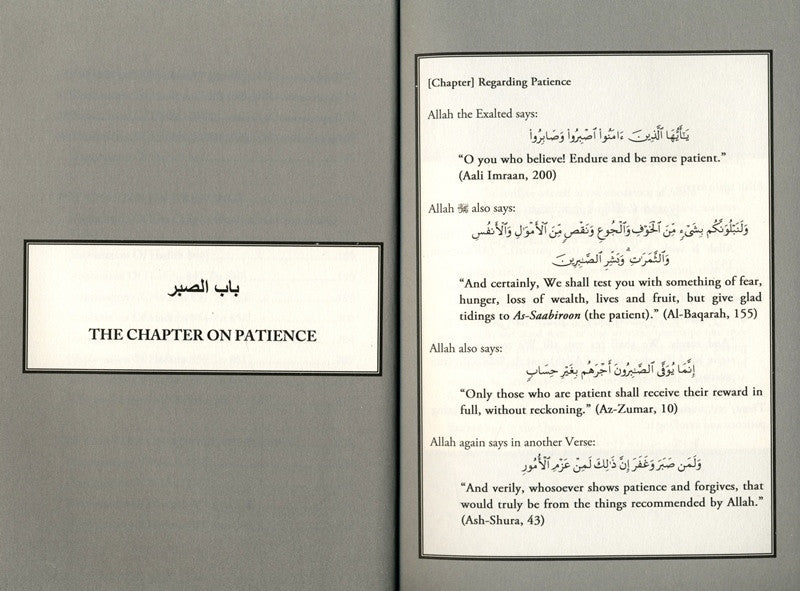 باب الصبر
THE CHAPTER ON PATIENCE
[Chapter] Regarding Patience
Allah the Exalted says:
يَٰٓأَيُّهَا ٱلَّذِينَ ءَامَنُوا۟ ٱصْبِرُوا۟ وَصَابِرُوا۟
“O you who believe! Endure and be more patient.”
(Aali Imraan, 200)
Allah ﷻ also says:
وَلَنَبْلُوَنَّكُم بِشَىْءٍ مِّنَ ٱلْخَوْفِ وَٱلْجُوعِ وَنَقْصٍ مِّنَ ٱلْأَمْوَٰلِ وَٱلْأَنفُسِ
وَٱلثَّمَرَٰتِ ۗ وَبَشِّرِ ٱلصَّٰبِرِينَ
“And certainly, We shall test you with something of fear,
hunger, loss of wealth, lives and fruit, but give glad
tidings to As-Saabiroon (the patient).” (Al-Baqarah, 155)
Allah also says:
إِنَّمَا يُوَفَّى ٱلصَّٰبِرُونَ أَجْرَهُم بِغَيْرِ حِسَابٍ
“Only those who are patient shall receive their reward in
full, without reckoning.” (Az-Zumar, 10)
Allah again says in another Verse:
وَلَمَن صَبَرَ وَغَفَرَ إِنَّ ذَٰلِكَ لَمِنْ عَزْمِ ٱلْأُمُورِ
“And verily, whosoever shows patience and forgives, that
would truly be from the things recommended by Allah.”
(Ash-Shura, 43)